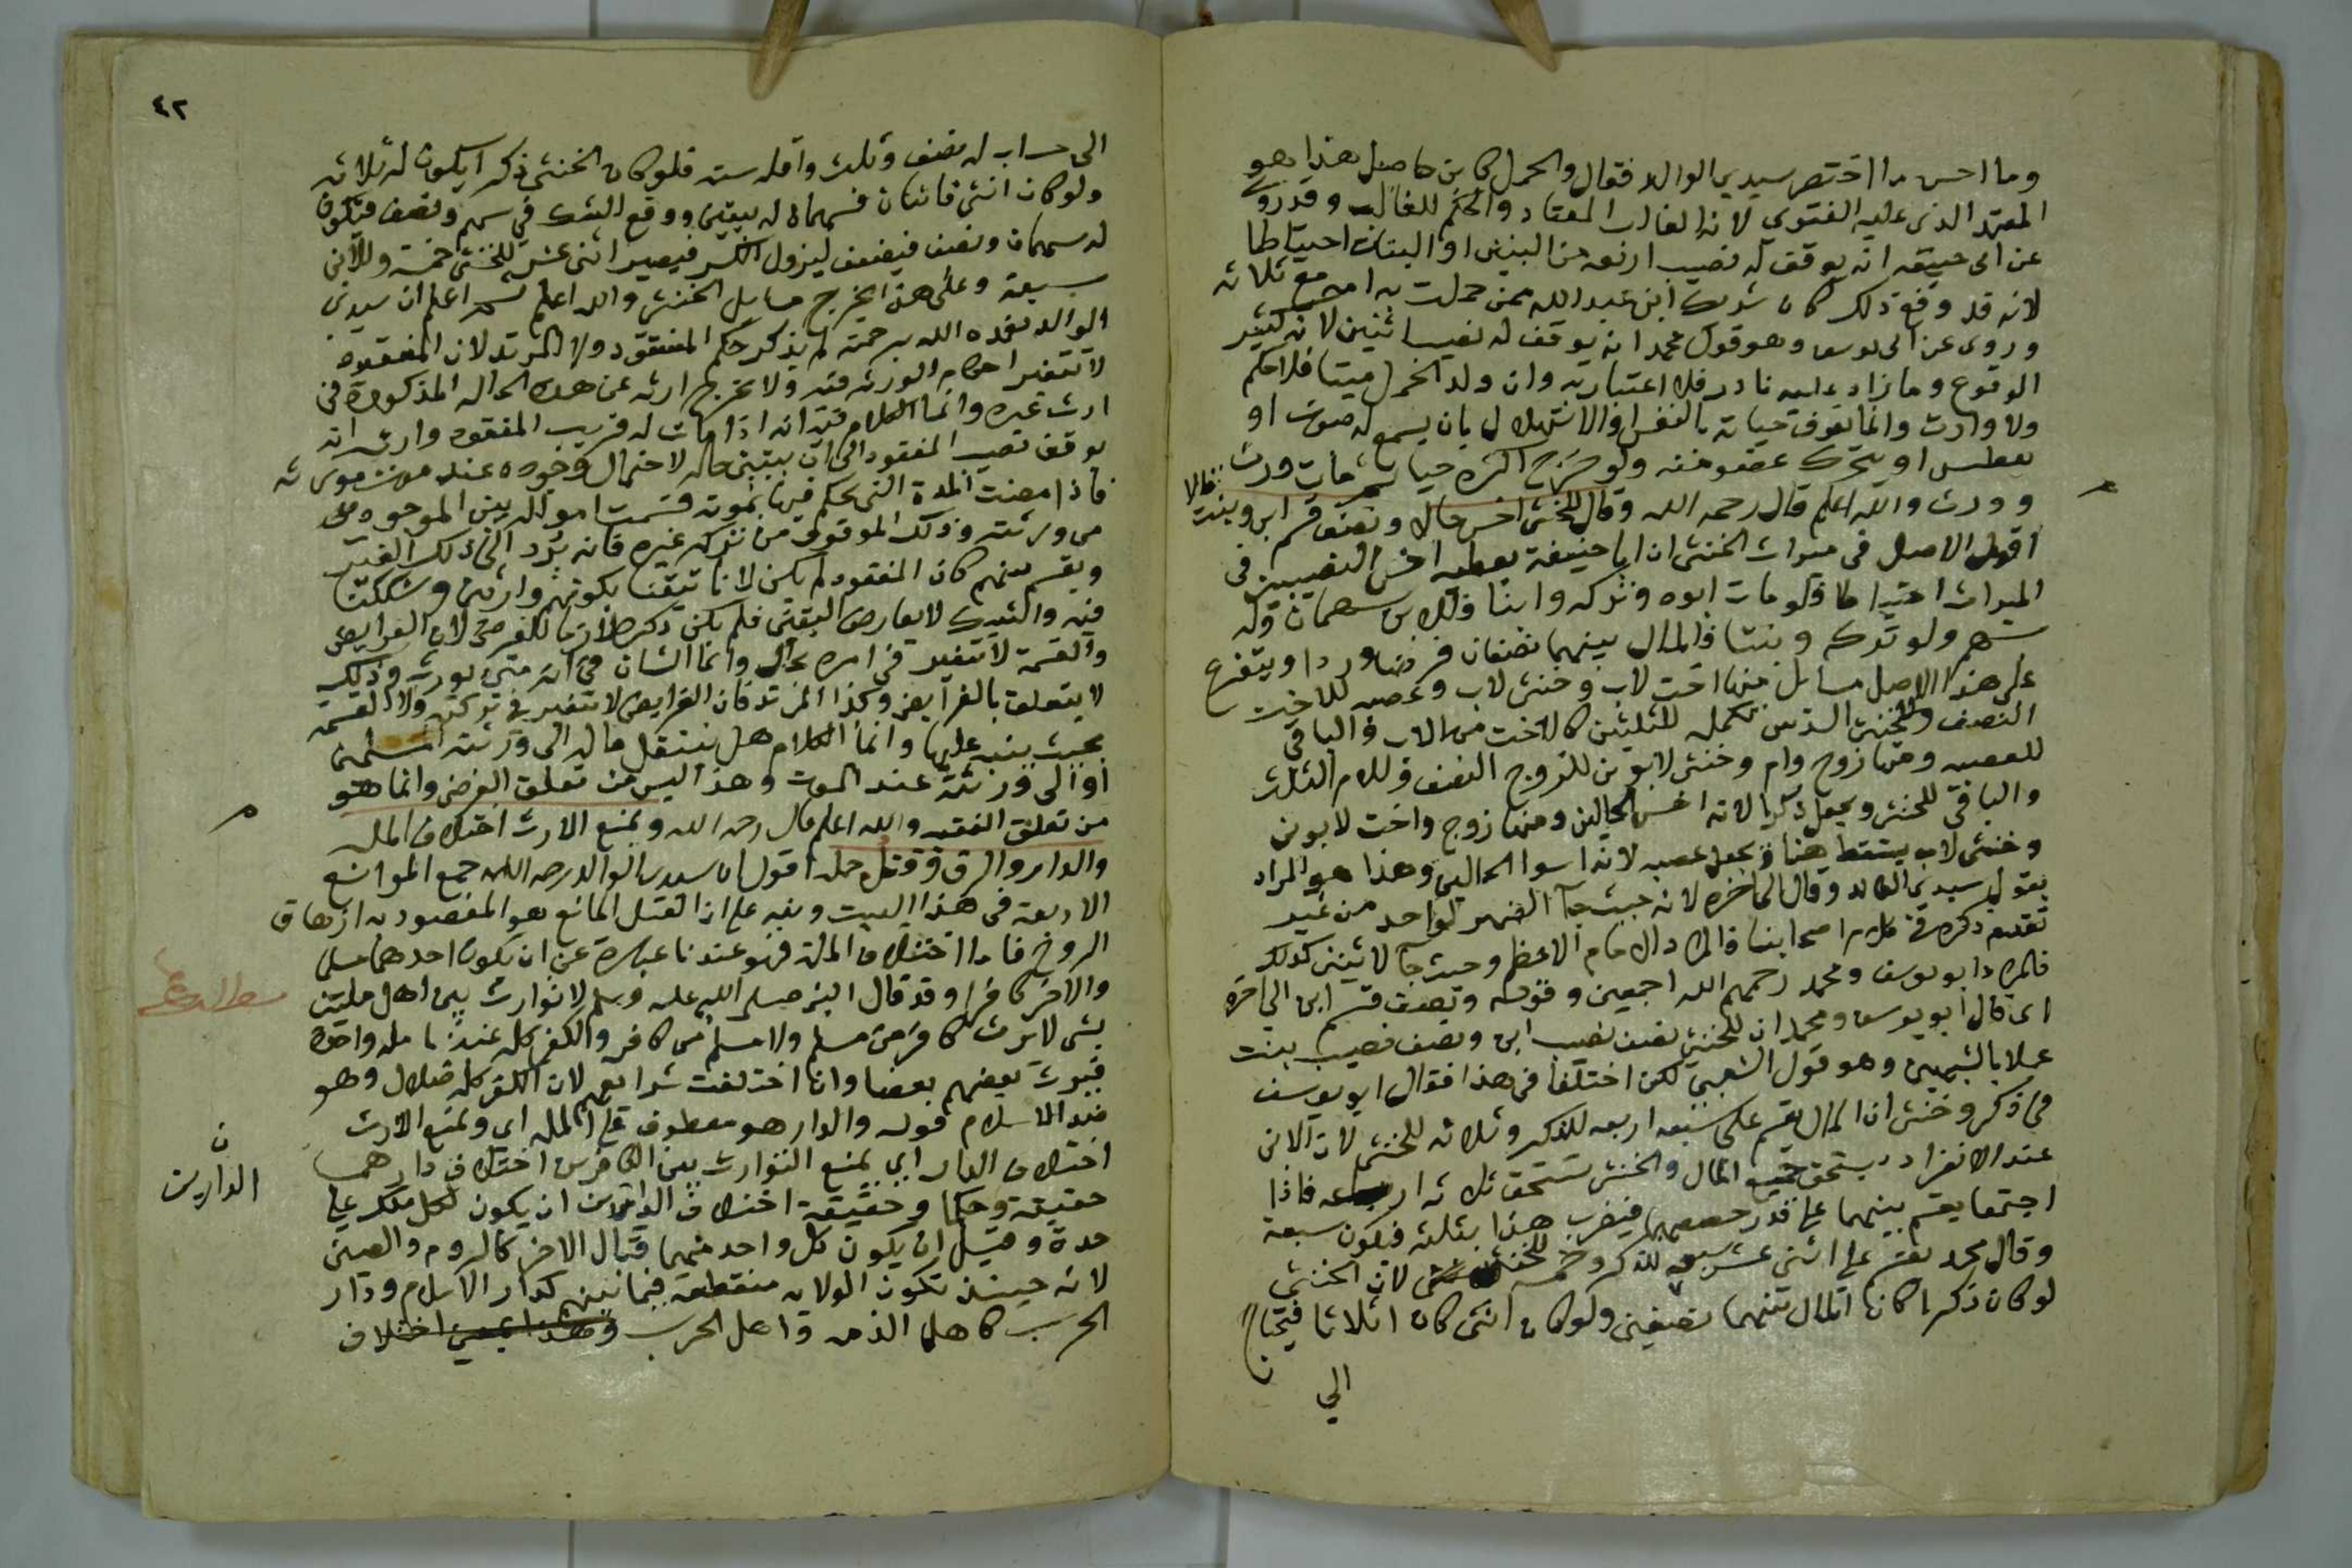 وما احسن ما اختصر سيدي الوالد فقال والحمل كابن حاصل هذا هو
المعتمد الذي عليه الفتوى لانه الغالب المعتاد والحكم للغالب وقد روي
عن ابي حنيفة انه يوقف له نصيب اربعة من البنين او البنات احتياطا
لانه قد وقع ذلك كان شريك ابن عبد الله ممن حملت به امه مع ثلاثة
وروى عن ابي يوسف وهو قول محمد انه يوقف له نصيب اثنين لانه كثير
الوقوع وما زاد عليه نادر فلا اعتبار به وان ولد الحمل ميتا فلا حكم
ولا وارث وانما تعرف حياته بالنفس او الاستهلال بان يسمع له صوت او
يعطس او يتحرك عضو منه ولو خرج اكثره حيا ثم مات ورث
وورث والله اعلم قال رحمه الله وقال للخنثى اخس حالا ونصف قسم ابن وبنت
اقول الاصل في ميراث الخنثى ان ابا حنيفة يعطيه اخس النصيبين في
الميراث احتياطا فلو مات ابوه وتركه وابنا فللابن سهمان وله
سهم ولو تركه وبنتا فالمال بينهما نصفان فرضا وردا ويتفرع
على هذا الاصل مسائل منها اخت لاب وخنثى لاب وعصبة للاخت
النصف وللخنثى السدس تكملة للثلثين كالاخت من الاب والباقي
للعصبة ومنها زوج وام وخنثى لابوين للزوج النصف وللام الثلث
والباقي للخنثى ويجعل ذكرا لانه اخس الحالين ومنها زوج واخت لابوين
وخنثى لاب يسقط هنا ويجعل عصبة لانه اسوا الحالين وهذا هو المراد
بقول سيدي الوالد وقال الى اخره لانه حيث جآ الضمير لواحد من غير
تقدم ذكره في كلام اصحابنا فالمراد الامام الاعظم وحيث جآ لاثنين كذلك
فالمراد ابو يوسف ومحمد رحمهم الله اجمعين وقوله ونصف قسم ابن الى اخره
اى قال ابو يوسف ومحمد ان للخنثى نصف نصيب ابن ونصف نصيب بنت
عملا بالشبهين وهو قول الشعبي لكن اختلفا في هذا فقال ابو يوسف
في ذكر وخنثى ان المال يقسم على سبعة اربعة للذكر وثلاثة للخنثى لان الابن
عند الانفراد يستحق جميع المال والخنثى تستحق ثلاثة ارباعه فاذا
اجتمعا يقسم بينهما على قدر حصصهما فيضرب هذا بثلثه فيكون سبعة
وقال محمد تقسم على اثنى عشر سبعة للذكر وخمسة للخنثى لان الخنثى
لو كان ذكرا كان المال بينهما نصفين ولو كان انثى كان اثلاثا فيحتاج
الي
٤٢
الى حساب له نصف وثلث واقله ستة فلو كان الخنثى ذكرا يكون له ثلاثة
ولو كان انثى فاثنان فسهمان له بيقين ووقع الشك في سهم ونصف فيكون
له سهمان ونصف فيضعف ليزول الكسر فيصير اثنى عشر للخنثى خمسة وللابن
سبعة وعلى هذا يخرج مسايل الخنثى والله اعلم ثم اعلم ان سيدي
الوالد تغمده الله برحمته لم يذكر حكم المفقود ولا المرتد لان المفقود
لا تتغير احكام الورثة فيه ولا يخرج ارثه عن هذه الحالة المذكورة في
ارث غيره وانما الكلام فيه انه اذا مات له قريب المفقود وارث انه
يوقف نصيب المفقود الى ان يتبين حاله لاحتمال وجوده عند موت مورثه
فاذا مضت المدة التي يحكم فيها بموته قسمت امواله بين الموجودين
من ورثته وذلك الموقوف من تركة غيره فانه يرد الى ذلك الغير
ويقسم بينهم كان المفقود لم يكن لانا تيقنا بكونهم وارثين وشككنا
فيه والشك لا يعارض اليقين فلم يكن ذكره لازما للفرضي لان الفرايض
والقسمة لا تتغير في امره بحال وانما الشان في انه متى يورث وذلك
لا يتعلق بالفرايض وكذا المرتد فان الفرايض لا تتغير في تركته ولا القسمة
بحيث ينبه عليها وانما الكلام هل ينتقل ماله الى ورثته المسلمين
او الى ورثته عند الموت وهذا ليس من تعلق الفرض وانما هو
من تعلق الفقه والله اعلم قال رحمه الله ويمنع الارث اختلاف المله
والدار والرق وقتل حمله اقول ان سيدي الوالد رحمه الله جمع الموانع
الاربعة في هذا البيت ونبه على ان القتل المانع هو المقصود به ازهاق
الروح فاما اختلاف الملة فهو عندنا عبارة عن ان يكون احدهما مسلما
والاخر كافرا وقد قال النبي صلى الله عليه وسلم لا توارث بين اهل ملتين
بشى لا يرث كافر من مسلم ولا مسلم من كافر والكفر كله عندنا ملة واحدة
فيرث بعضهم بعضا وان اختلفت شرايعهم لان الكفر كله ضلال وهو
ضد الاسلام قوله والدار هو معطوف على المله اي ويمنع الارث
اختلاف الدار اي يمنع التوارث بين الكافرين اختلاف دارهما
حقيقة وحكما وحقيقة اختلاف الدارين ان يكون لكل ملك على
حدة وقيل ان يكون كل واحد منهما قتال الاخر كالروم والصين
لانه حينئذ تكون الولاية منقطعة فيما بينهم كدار الاسلام ودار
الحرب كاهل الذمة واهل الحرب وهذا يعني اختلاف
ن
الدارين